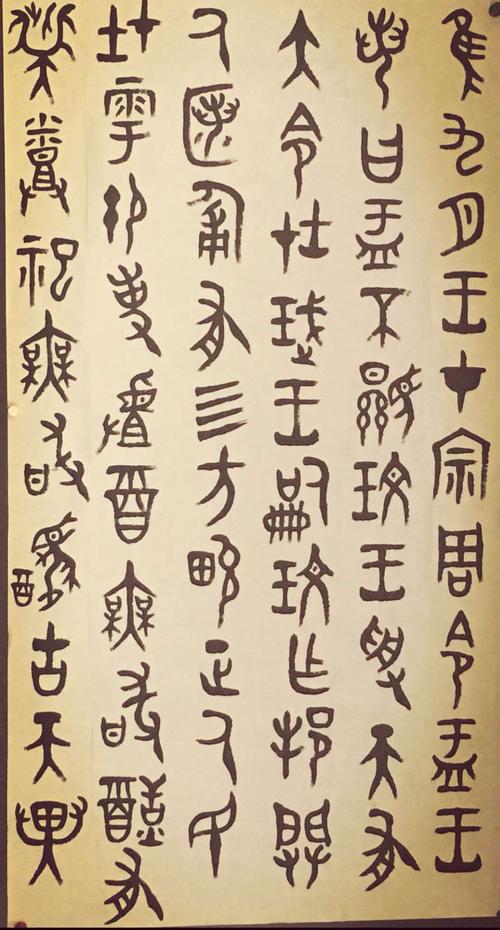 隹九月王才宗周令盂王
若曰盂不顯玟王受天有
大令在珷王嗣玟乍邦闢
厥匿匍有四方畯正厥民
在雩御事䖒酉無敢酖有
祡烝祀無敢醻古天異